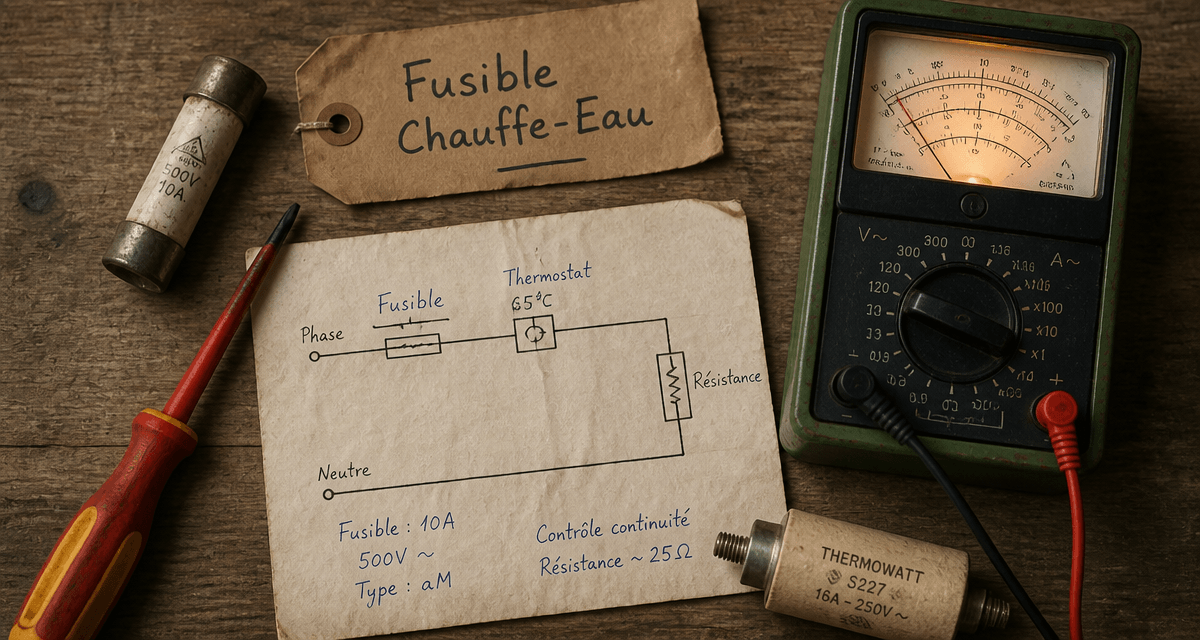 Fusible
Chauffe-Eau
500V
10A
Thermostat
65°C
Fusible
Phase
Résistance
Neutre
Fusible : 10A
500V ~
Type : aM
Contrôle continuité
Résistance ~ 25Ω
V~
A~
300
300
120
120
x100
x10
x1
+
THERMOWATT
S227
16A - 250V ~